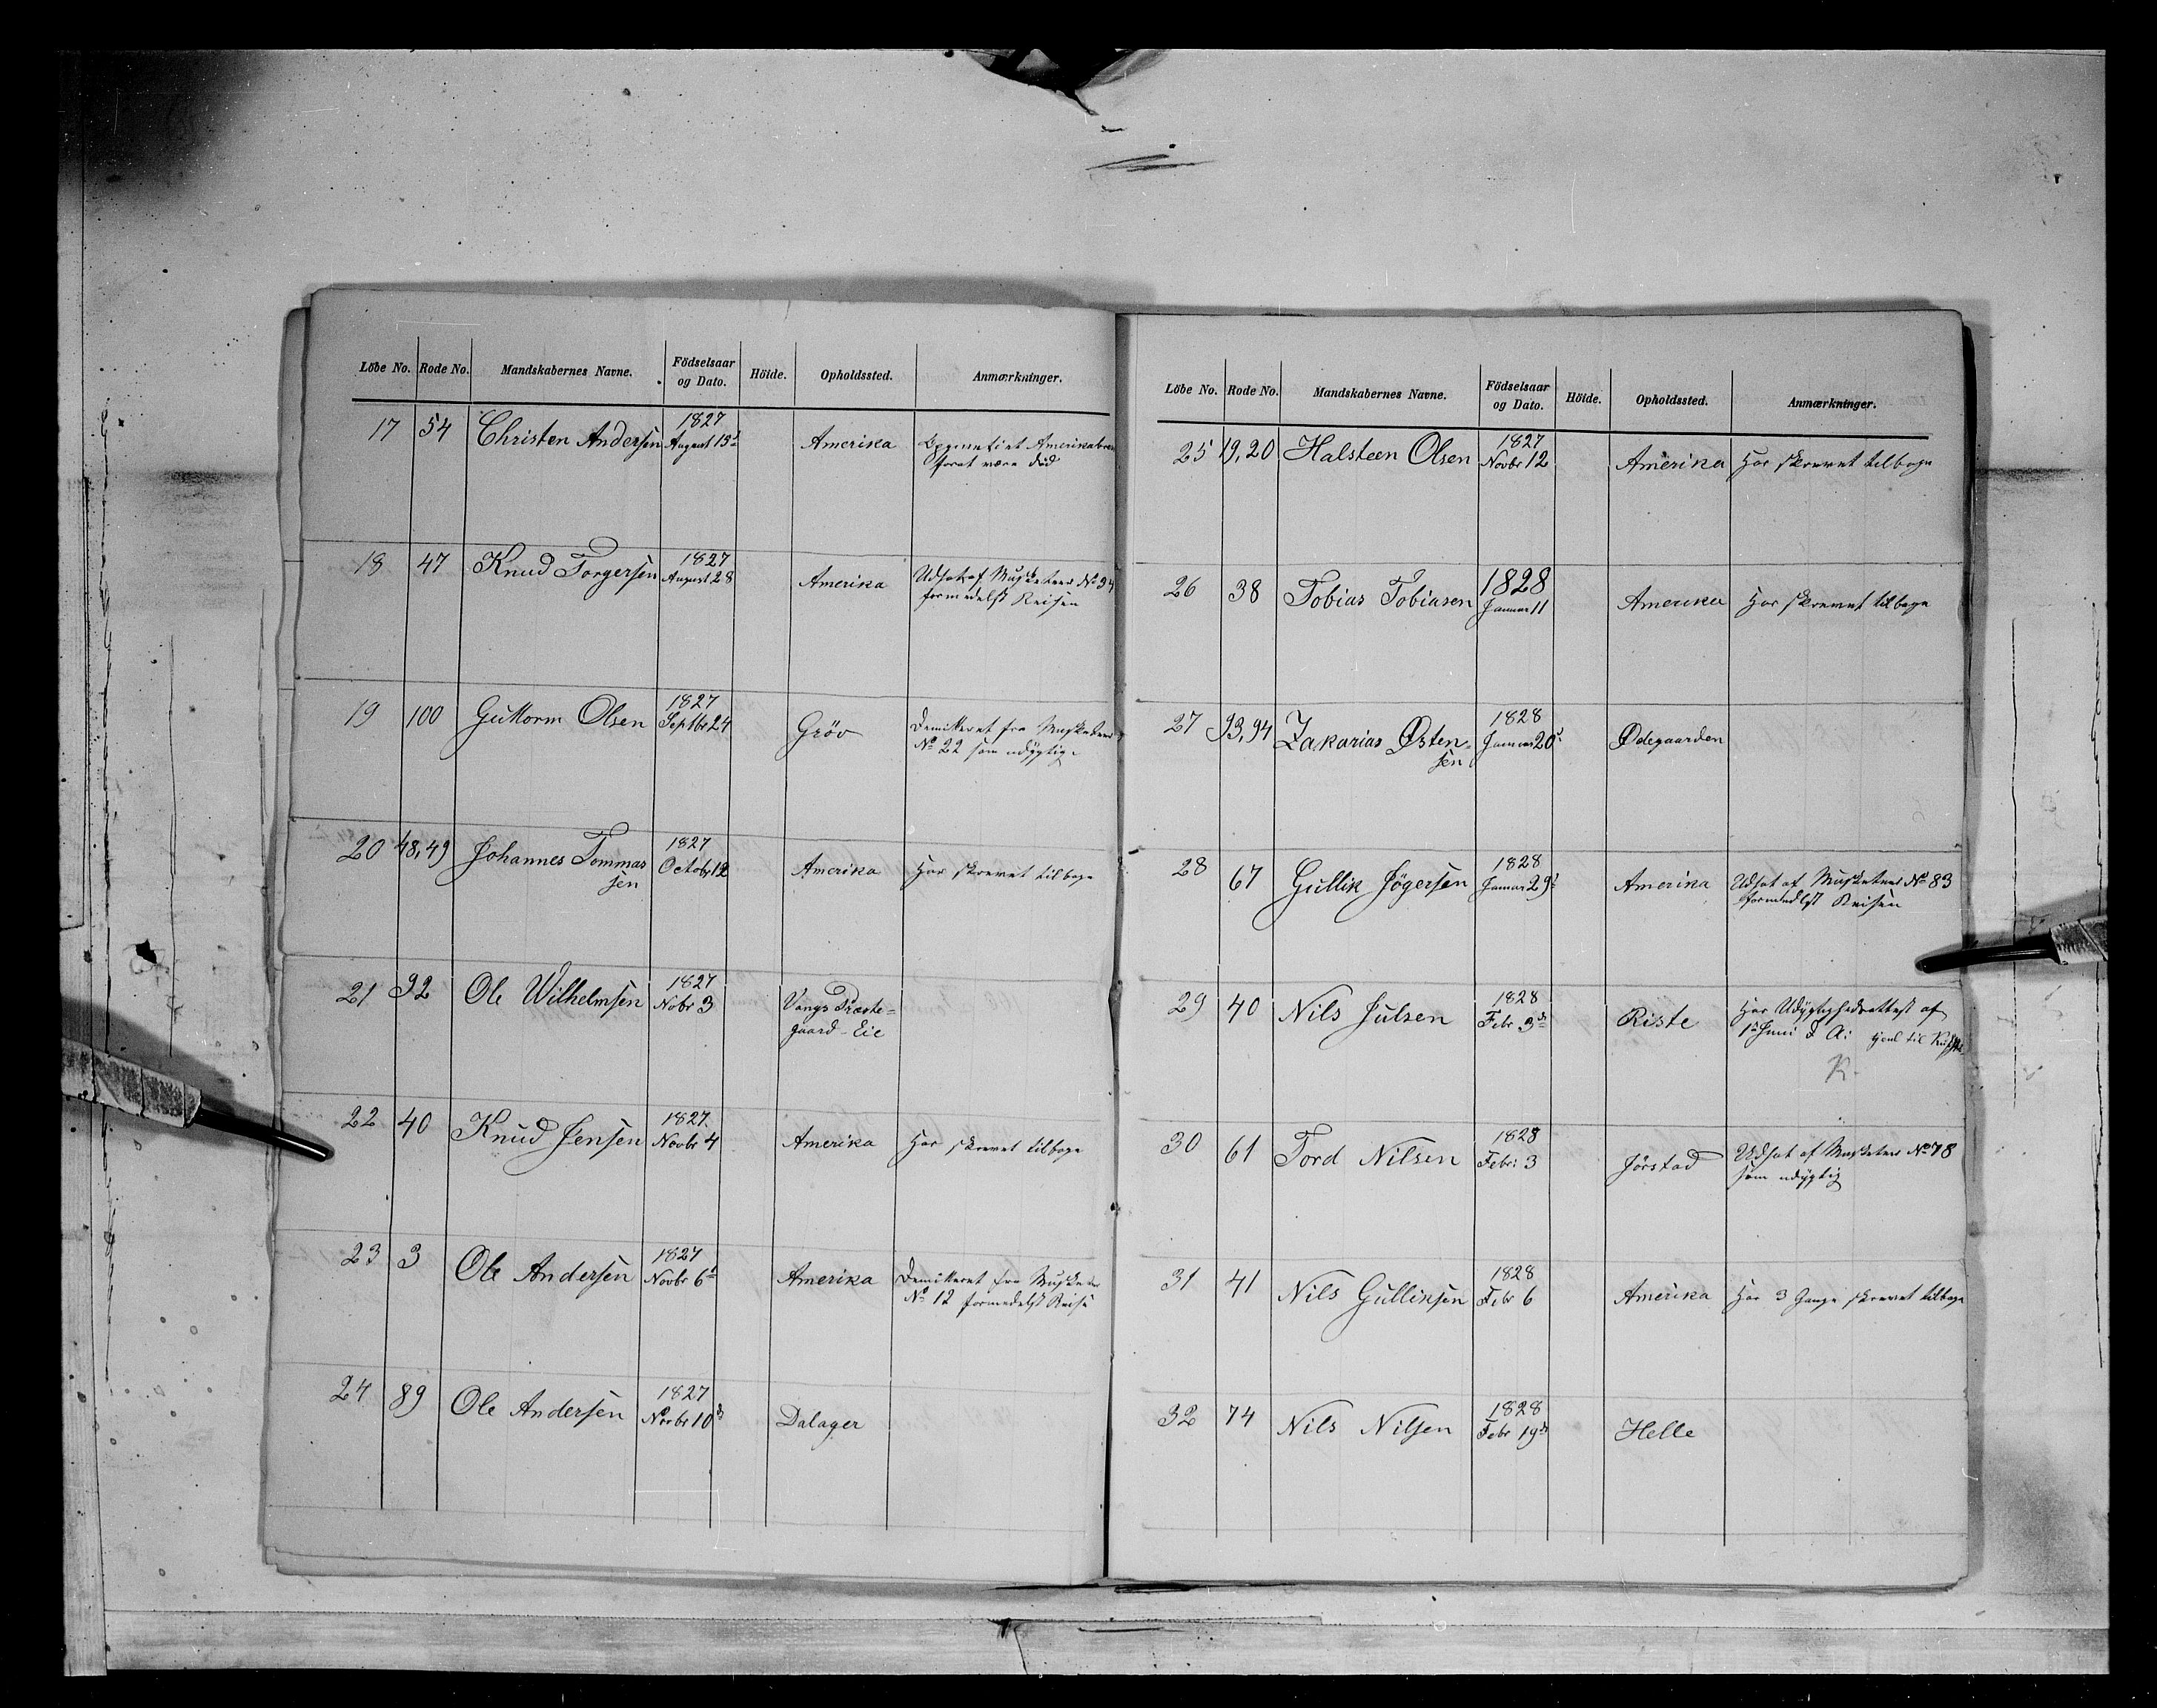 Löbe No. Rode No. Mandskabernes Navne. Födselsaar og Dato. Höide. Opholdssted. Anmærkninger.
17 54 Christen Andersen 1827 August 15d Amerika
forat være død
18 47 Knud Torgersen 1827 August 28 Amerika Udsat af Musketeer No 34
formedelst Reisen
19 100 Guttorm Olsen 1827 Septbr 24 Gröv Demitteret fra Musketeer
No 22 som udygtig
20 48,49 Johannes Tommas
sen 1827 Octobr 12 Amerika Har skrevet tilbage
21 92 Ole Wilhelmsen 1827 Nobr 3 Vangs Præste=
gaard-Eie
22 40 Knud Jensen 1827. Novbr 4 Amerika Har skrevet tilbage
23 3 Ole Andersen 1827 Novbr 6d Amerika Demitteret fra Musketeer
No 12 formedelst Reise
24 89 Ole Andersen 1827 Novbr 10d Dalager
Löbe No. Rode No. Mandskabernes Navne. Födselsaar og Dato. Höide. Opholdssted. Anmærkninger.
25 19,20 Halsteen Olsen 1827 Novbr 12 Amerika Har skrevet tilbage
26 38 Tobias Tobiasen 1828 Januar 11 Amerika Har skrevet tilbage
27 93,94 Zakarias Østen=
sen 1828 Januar 20d Ødegaarden
28 67 Gullik Jögersen 1828 Januar 29d Amerika Udsat af Musketeer No 83
formedelst Reisen
29 40 Nils Julsen 1828 Febr 3d Riste Har Udygtighedsattest af
1d Juni
R.
30 61 Tord Nilsen 1828 Febr: 3 Jörstad Udsat af Musketeer No 78
som udygtig
31 41 Nils Gulliksen 1828 Febr 6 Amerika Har 3 Gange skrevet tilbage
32 74 Nils Nilsen 1828 Febr 19d Helle